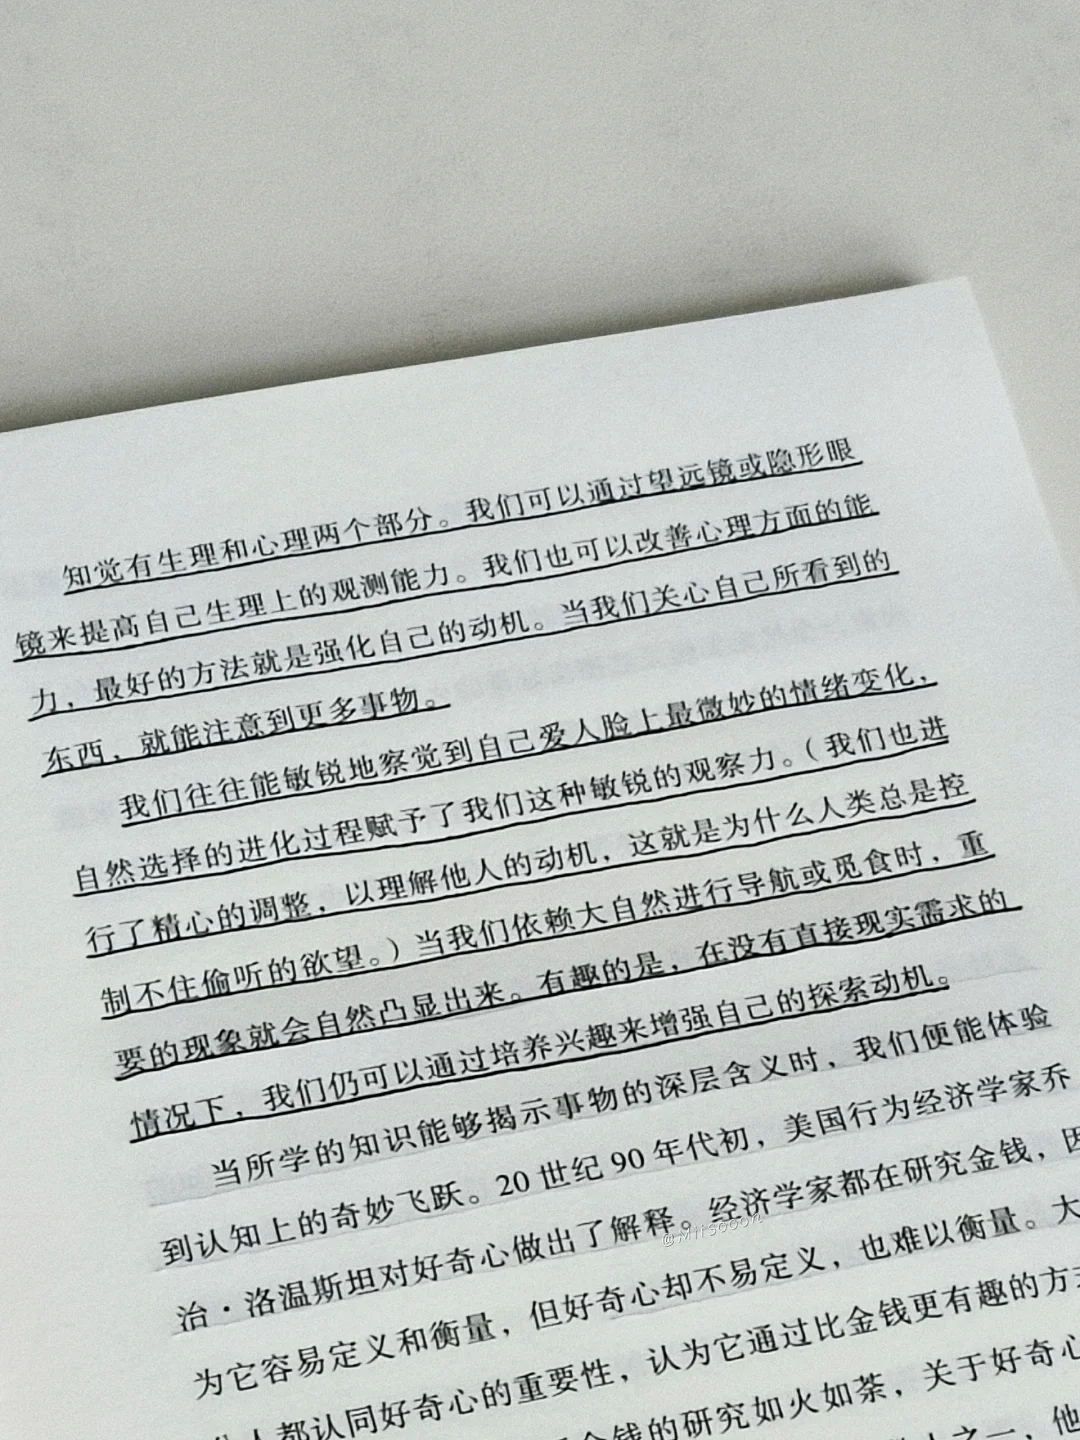 知觉有生理和心理两个部分。我们可以通过望远镜或隐形眼
镜来提高自己生理上的观测能力。我们也可以改善心理方面的能
力，最好的方法就是强化自己的动机。当我们关心自己所看到的
东西，就能注意到更多事物。
我们往往能敏锐地察觉到自己爱人脸上最微妙的情绪变化，
自然选择的进化过程赋予了我们这种敏锐的观察力。（我们也进
行了精心的调整，以理解他人的动机，这就是为什么人类总是控
制不住偷听的欲望。）当我们依赖大自然进行导航或觅食时，重
要的现象就会自然凸显出来。有趣的是，在没有直接现实需求的
情况下，我们仍可以通过培养兴趣来增强自己的探索动机。
当所学的知识能够揭示事物的深层含义时，我们便能体验
到认知上的奇妙飞跃。20世纪90年代初，美国行为经济学家乔
治·洛温斯坦对好奇心做出了解释。经济学家都在研究金钱，因
为它容易定义和衡量，但好奇心却不易定义，也难以衡量。大
人都认同好奇心的重要性，认为它通过比金钱更有趣的方式
金钱的研究如火如荼，关于好奇心
人之一，他
@Mitsooon